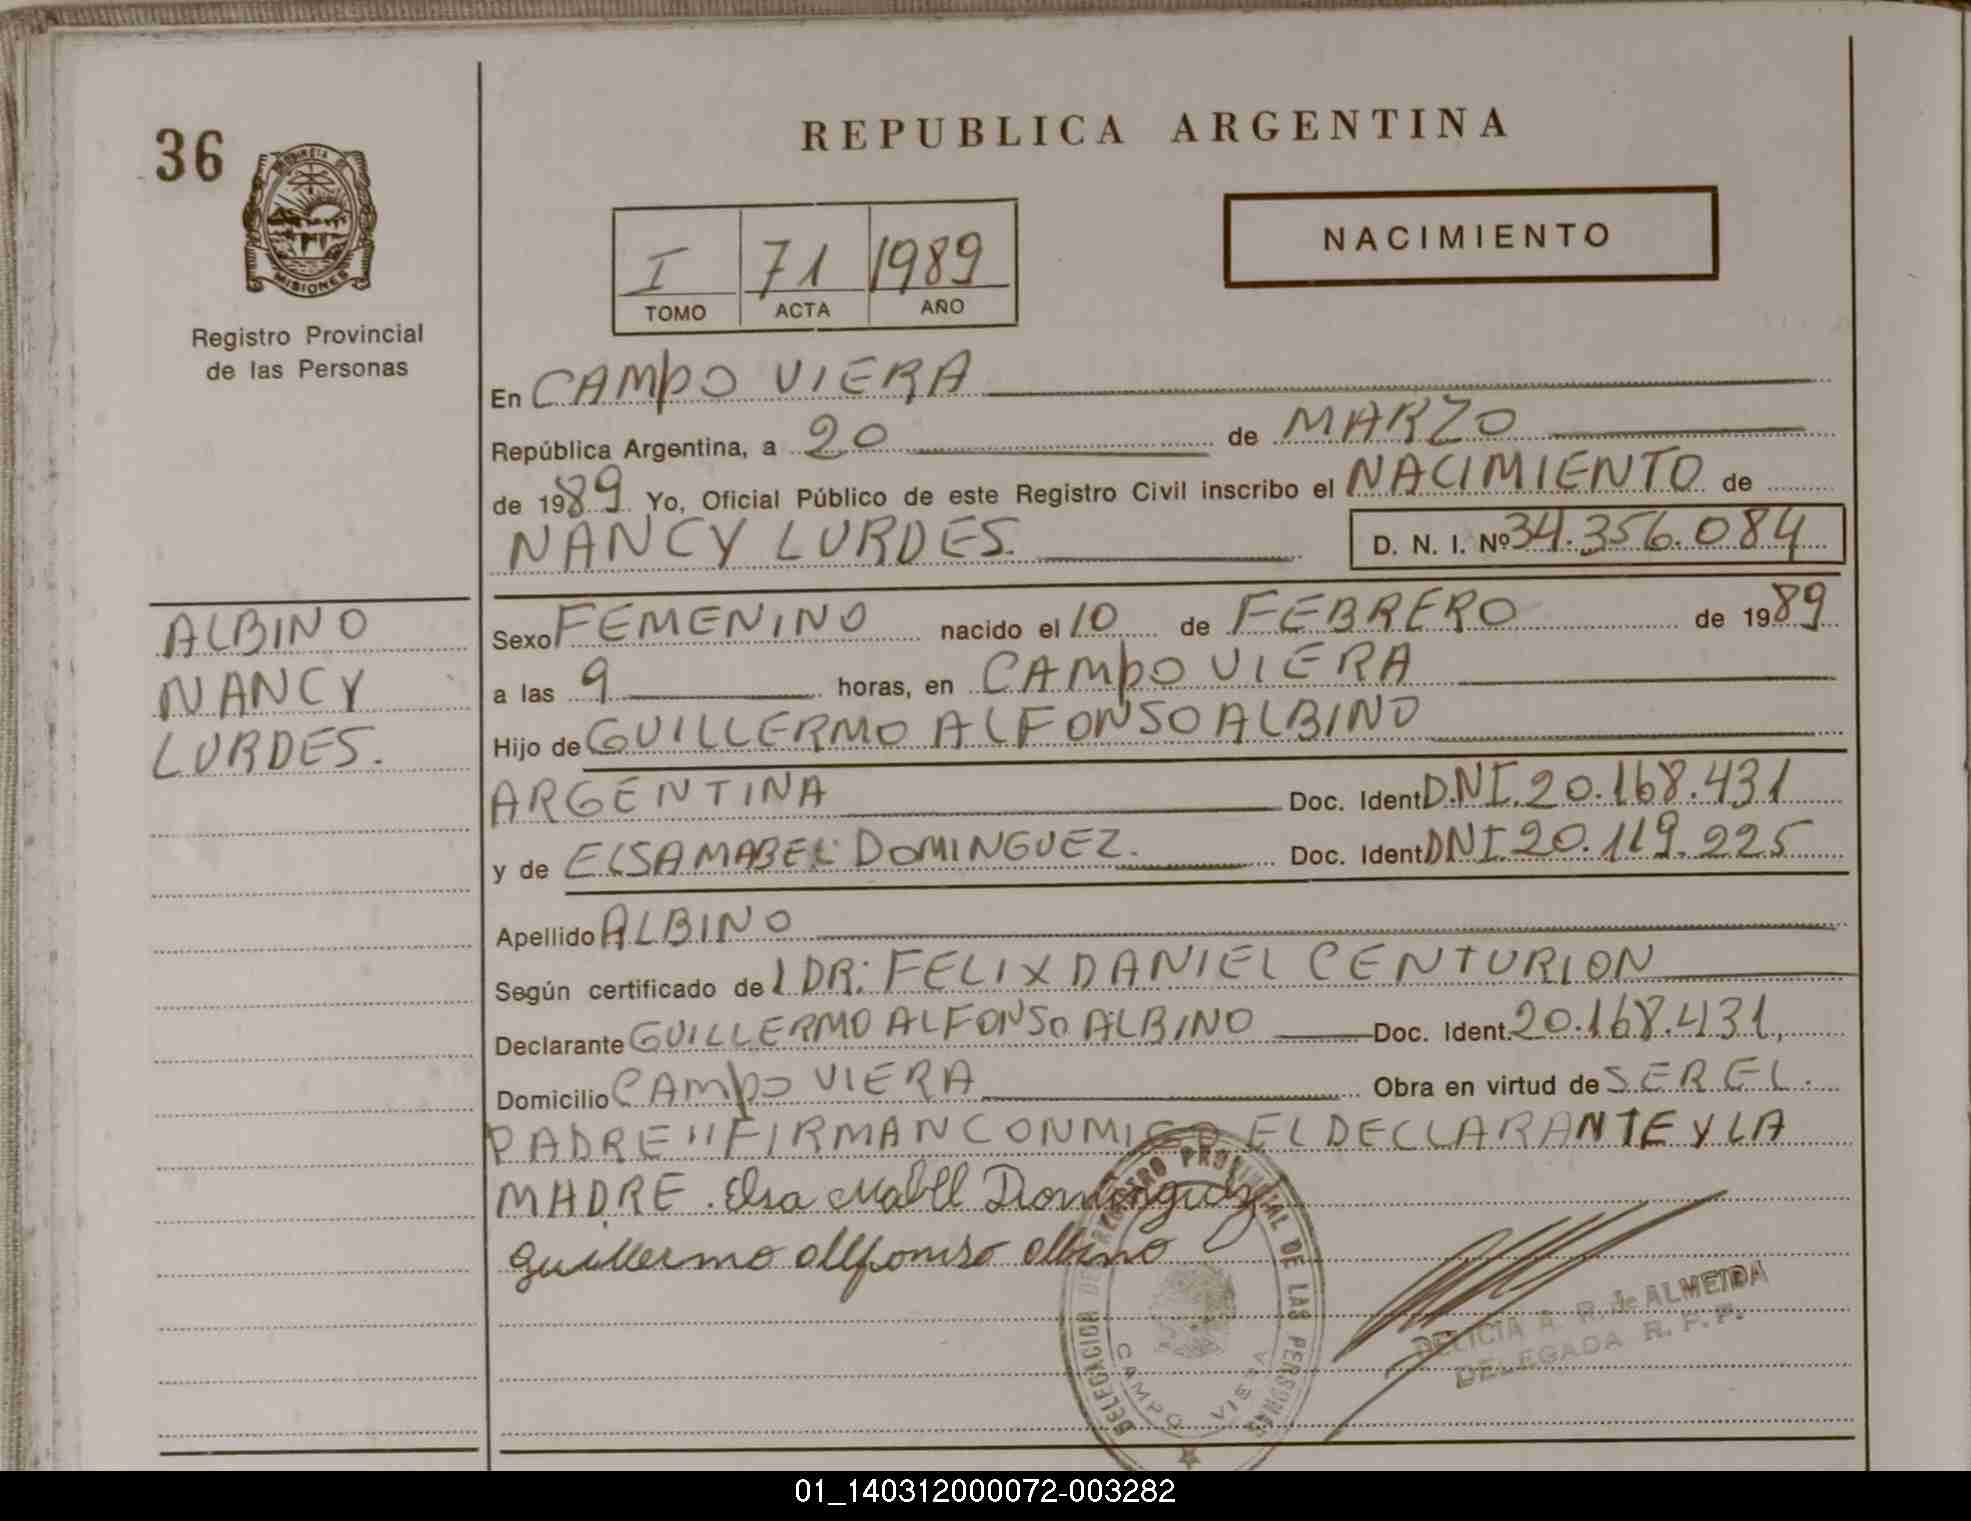 36
PROVINCIA DE
MISIONES
Registro Provincial
de las Personas
REPUBLICA ARGENTINA
I 71 1989
TOMO ACTA AÑO
NACIMIENTO
En CAMPO VIERA
República Argentina, a 20 de MARZO
de 1989 Yo, Oficial Público de este Registro Civil inscribo el NACIMIENTO de
NANCY LURDES. D. N. I. Nº 34.356.084
ALBINO
NANCY
LURDES.
Sexo FEMENINO nacido el 10 de FEBRERO de 1989
a las 9 horas, en CAMPO VIERA
Hijo de GUILLERMO ALFONSO ALBINO
ARGENTINA Doc. Ident D.NI. 20.168.431
y de ELSA MABEL DOMINGUEZ. Doc. Ident DNI 20.119.225
Apellido ALBINO
Según certificado de l DR: FELIX DANIEL CENTURION
Declarante GUILLERMO ALFONSO ALBINO Doc. Ident. 20.168.431,
Domicilio CAMPO VIERA Obra en virtud de SER EL.
PADRE " FIRMAN CONMIGO EL DECLARANTE Y LA
MADRE. Elsa Mabel Dominguez
Guillermo Alfonso Albino
DELEGACION DE REGISTRO PROVINCIAL DE LAS PERSONAS
CAMPO VIERA
DELICIA A. R. de ALMEIDA
DELEGADA R. P. P.
01_140312000072-003282